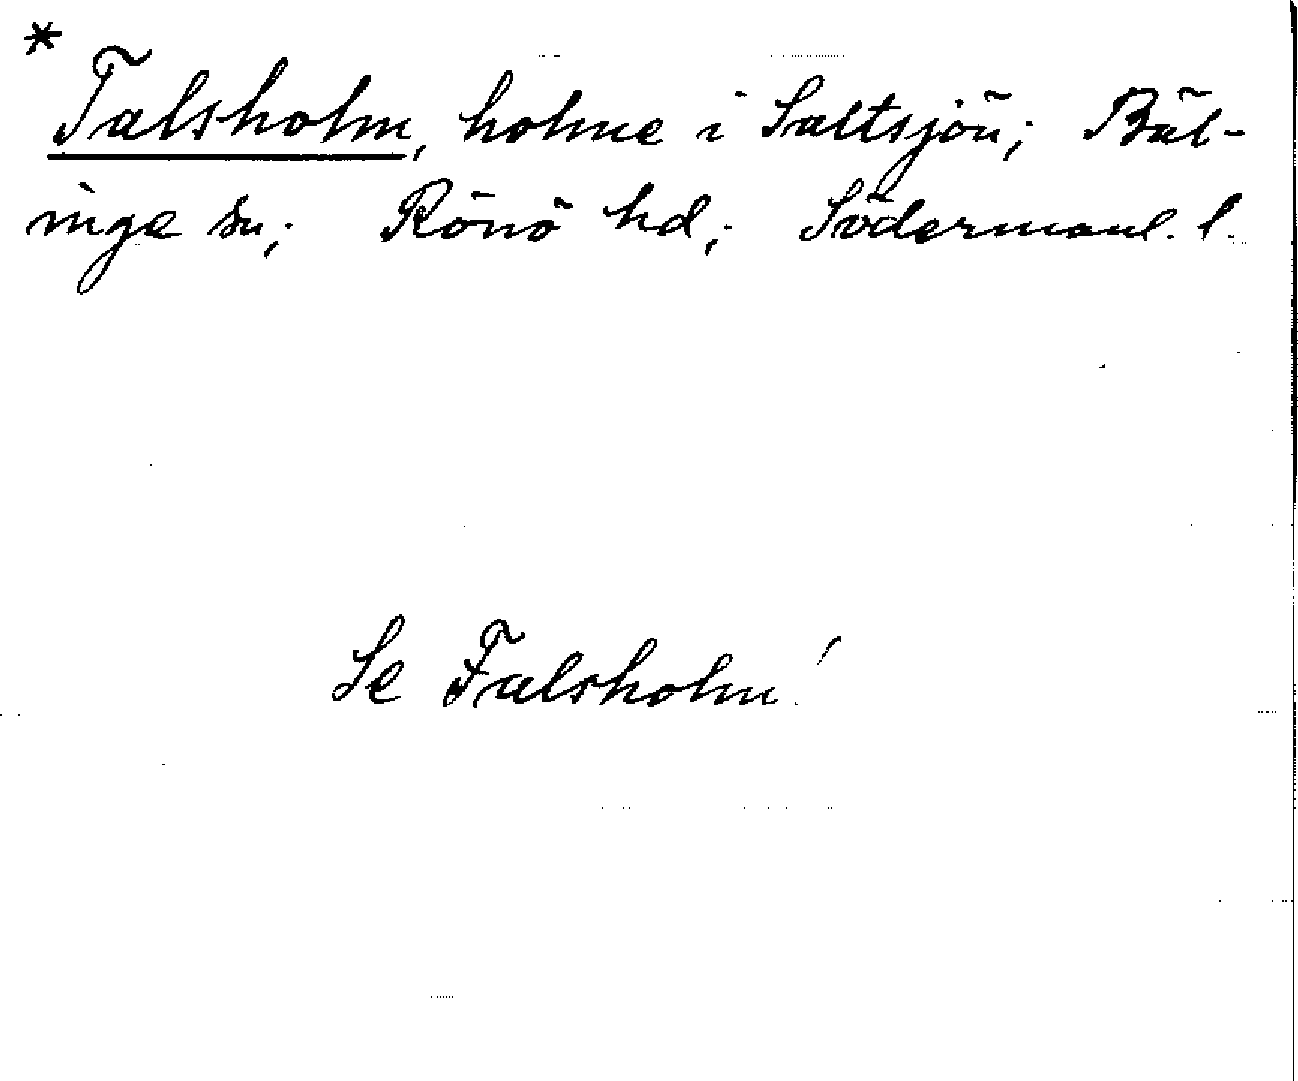 *
Talsholm, holme i Saltsjön; Bäl-
inge sn; Rönö hd; Södermanl. l.
Se Falsholm!